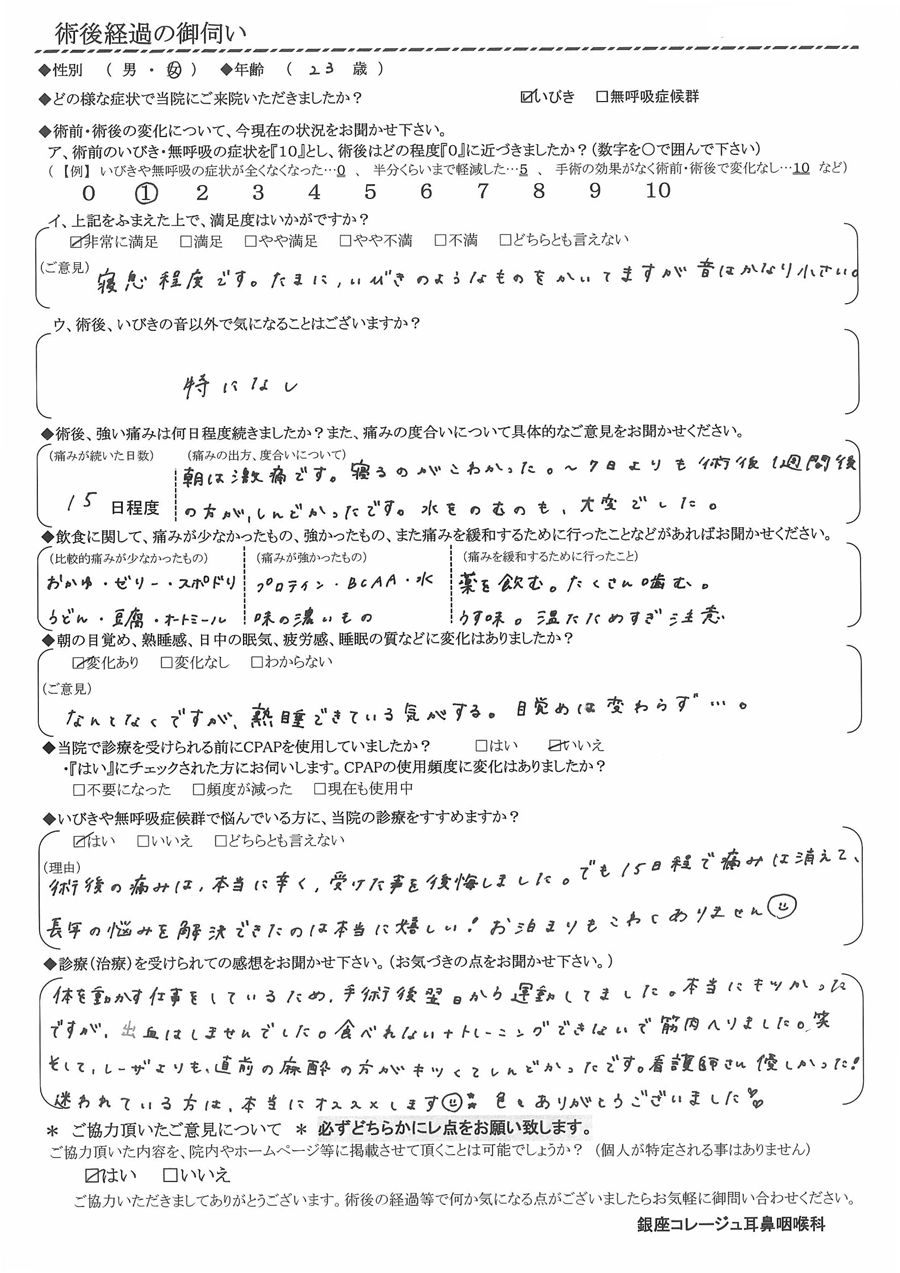 術後経過の御伺い
◆性別 ( 男 ・ 女 ) ◆年齢 ( 23 歳 )
◆どの様な症状で当院にご来院いただきましたか? ☑いびき □無呼吸症候群
◆術前・術後の変化について、今現在の状況をお聞かせ下さい。
ア、術前のいびき・無呼吸の症状を『10』とし、術後はどの程度『0』に近づきましたか?(数字を○で囲んで下さい)
(【例】 いびきや無呼吸の症状が全くなくなった…0 、 半分くらいまで軽減した…5 、 手術の効果がなく術前・術後で変化なし…10 など)
0 ① 2 3 4 5 6 7 8 9 10
イ、上記をふまえた上で、満足度はいかがですか?
☑非常に満足 □満足 □やや満足 □やや不満 □不満 □どちらとも言えない
(ご意見) 寝息程度です。たまに,いびきのようなものをかいてますが音はかなり小さい。
ウ、術後、いびきの音以外で気になることはございますか?
特になし
◆術後、強い痛みは何日程度続きましたか?また、痛みの度合いについて具体的なご意見をお聞かせください。
(痛みが続いた日数) (痛みの出方、度合いについて)
朝は激痛です。寝るのがこわかった。~7日よりも術後1週間後
15 日程度 の方が,しんどかったです。水をのむのも,大変でした。
◆飲食に関して、痛みが少なかったもの、強かったもの、また痛みを緩和するために行ったことなどがあればお聞かせください。
(比較的痛みが少なかったもの) (痛みが強かったもの) (痛みを緩和するために行ったこと)
おかゆ・ゼリー・スポドリ プロテイン・BCAA・水 薬を飲む。たくさん噛む。
うどん・豆腐・オートミール 味の濃いもの うす味。温たためすぎ注意
◆朝の目覚め、熟睡感、日中の眠気、疲労感、睡眠の質などに変化はありましたか?
☑変化あり □変化なし □わからない
(ご意見)
なんとなくですが、熟睡できている気がする。目覚めは変わらず…。
◆当院で診療を受けられる前にCPAPを使用していましたか? □はい ☑いいえ
・『はい』にチェックされた方にお伺いします。CPAPの使用頻度に変化はありましたか?
□不要になった □頻度が減った □現在も使用中
◆いびきや無呼吸症候群で悩んでいる方に、当院の診療をすすめますか?
☑はい □いいえ □どちらとも言えない
(理由)
術後の痛みは,本当に辛く,受けた事を後悔しました。でも15日程で痛みは消えて、
長年の悩みを解決できたのは本当に嬉しい!お泊まりもこわくありません
◆診療(治療)を受けられての感想をお聞かせ下さい。(お気づきの点をお聞かせ下さい。)
体を動かす仕事をしているため,手術後翌日から運動してました。本当にキツかった
ですが,出血はしませんでした。食べれない+トレーニングできないで筋肉へりました。笑
そして,レーザよりも,直前の麻酔の方がキツくてしんどかったです。看護師さん優しかった!
迷われている方は,本当にオススメします 色々ありがとうございました
* ご協力頂いたご意見について * 必ずどちらかにレ点をお願い致します。
ご協力頂いた内容を、院内やホームページ等に掲載させて頂くことは可能でしょうか? (個人が特定される事はありません)
☑はい □いいえ
ご協力いただきましてありがとうございます。術後の経過等で何か気になる点がございましたらお気軽に御問い合わせください。
銀座コレージュ耳鼻咽喉科